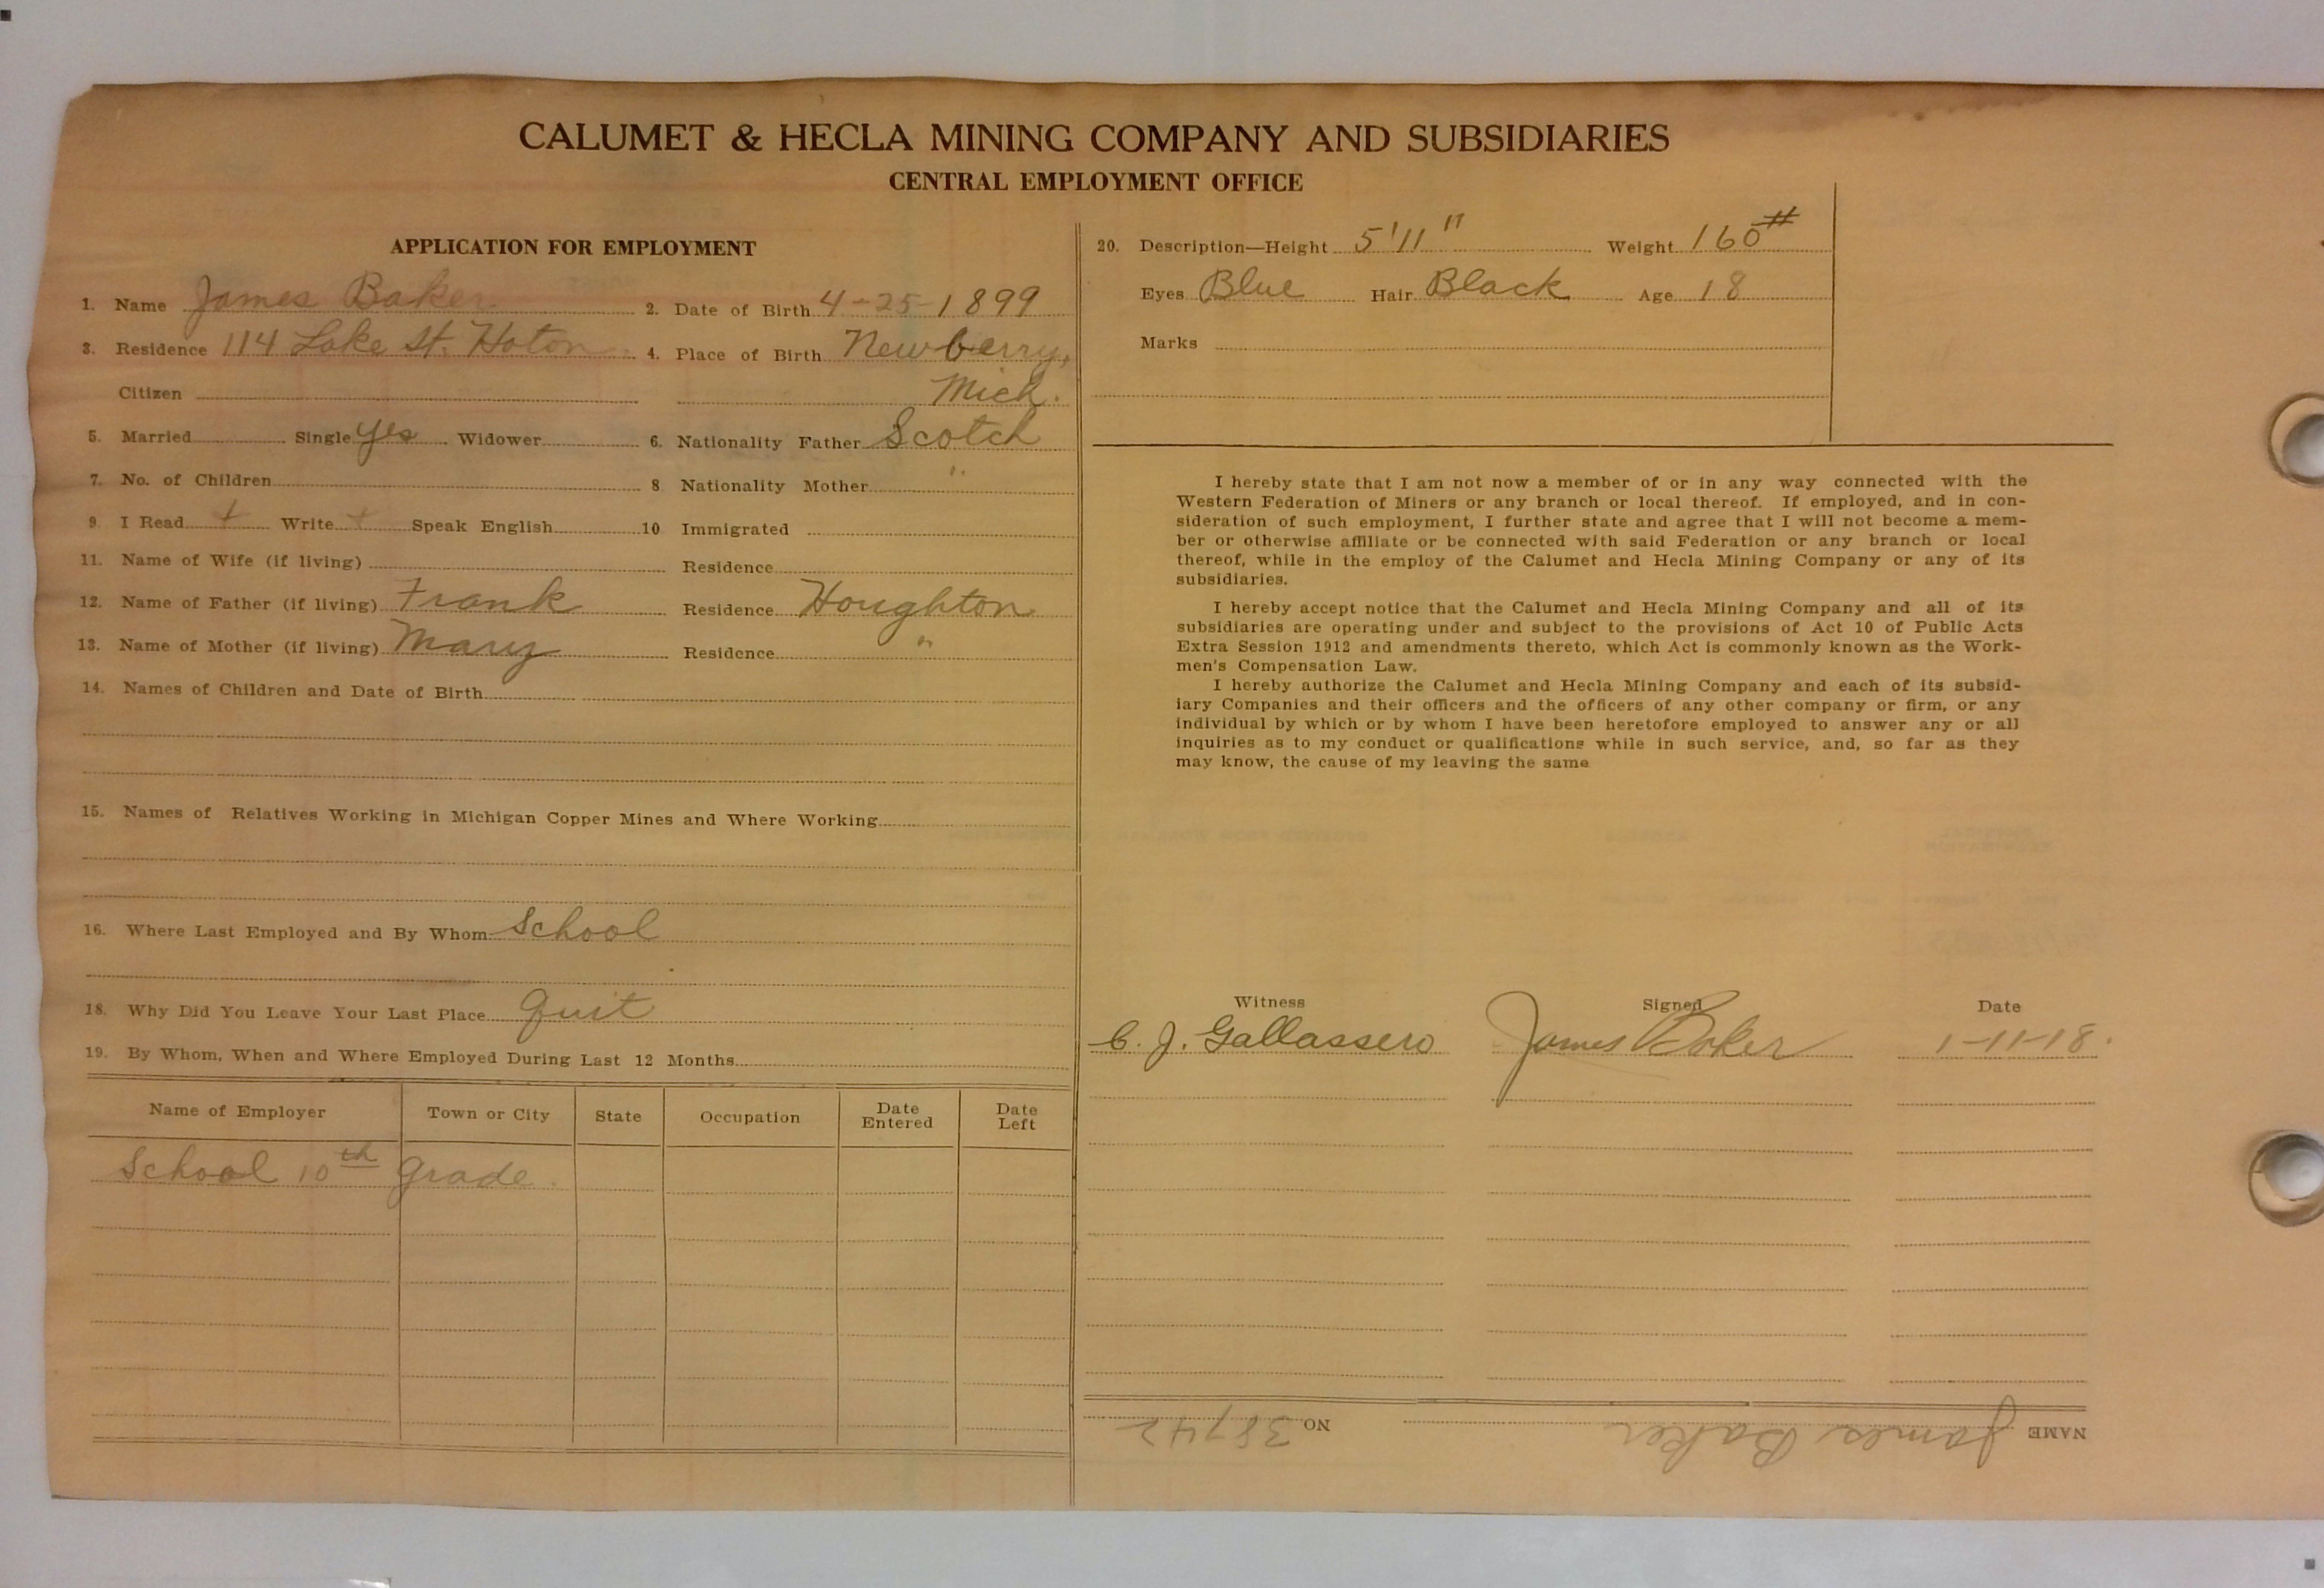 CALUMET & HECLA MINING COMPANY AND SUBSIDIARIES
CENTRAL EMPLOYMENT OFFICE
APPLICATION FOR EMPLOYMENT
1. Name James Baker 2. Date of Birth 4-25-1899
3. Residence 114 Lake St. Hoton 4. Place of Birth Newberry,
Citizen Mich.
5. Married Single yes Widower 6. Nationality Father Scotch
7. No. of Children 8 Nationality Mother "
9. I Read + Write + Speak English 10 Immigrated
11. Name of Wife (if living) Residence
12. Name of Father (if living) Frank Residence Houghton
13. Name of Mother (if living) Mary Residence "
14. Names of Children and Date of Birth
15. Names of Relatives Working in Michigan Copper Mines and Where Working
16. Where Last Employed and By Whom School
18. Why Did You Leave Your Last Place Quit
19. By Whom, When and Where Employed During Last 12 Months
Name of Employer Town or City State Occupation Date Entered Date Left
School 10th grade.
20. Description—Height 5'11" Weight 160#
Eyes Blue Hair Black Age 18
Marks
I hereby state that I am not now a member of or in any way connected with the
Western Federation of Miners or any branch or local thereof. If employed, and in con-
sideration of such employment, I further state and agree that I will not become a mem-
ber or otherwise affiliate or be connected with said Federation or any branch or local
thereof, while in the employ of the Calumet and Hecla Mining Company or any of its
subsidiaries.
I hereby accept notice that the Calumet and Hecla Mining Company and all of its
subsidiaries are operating under and subject to the provisions of Act 10 of Public Acts
Extra Session 1912 and amendments thereto, which Act is commonly known as the Work-
men's Compensation Law.
I hereby authorize the Calumet and Hecla Mining Company and each of its subsid-
iary Companies and their officers and the officers of any other company or firm, or any
individual by which or by whom I have been heretofore employed to answer any or all
inquiries as to my conduct or qualifications while in such service, and, so far as they
may know, the cause of my leaving the same
Witness Signed Date
C. J. Gallassero James Baker 1-11-18.
NAME James Baker NO 38742